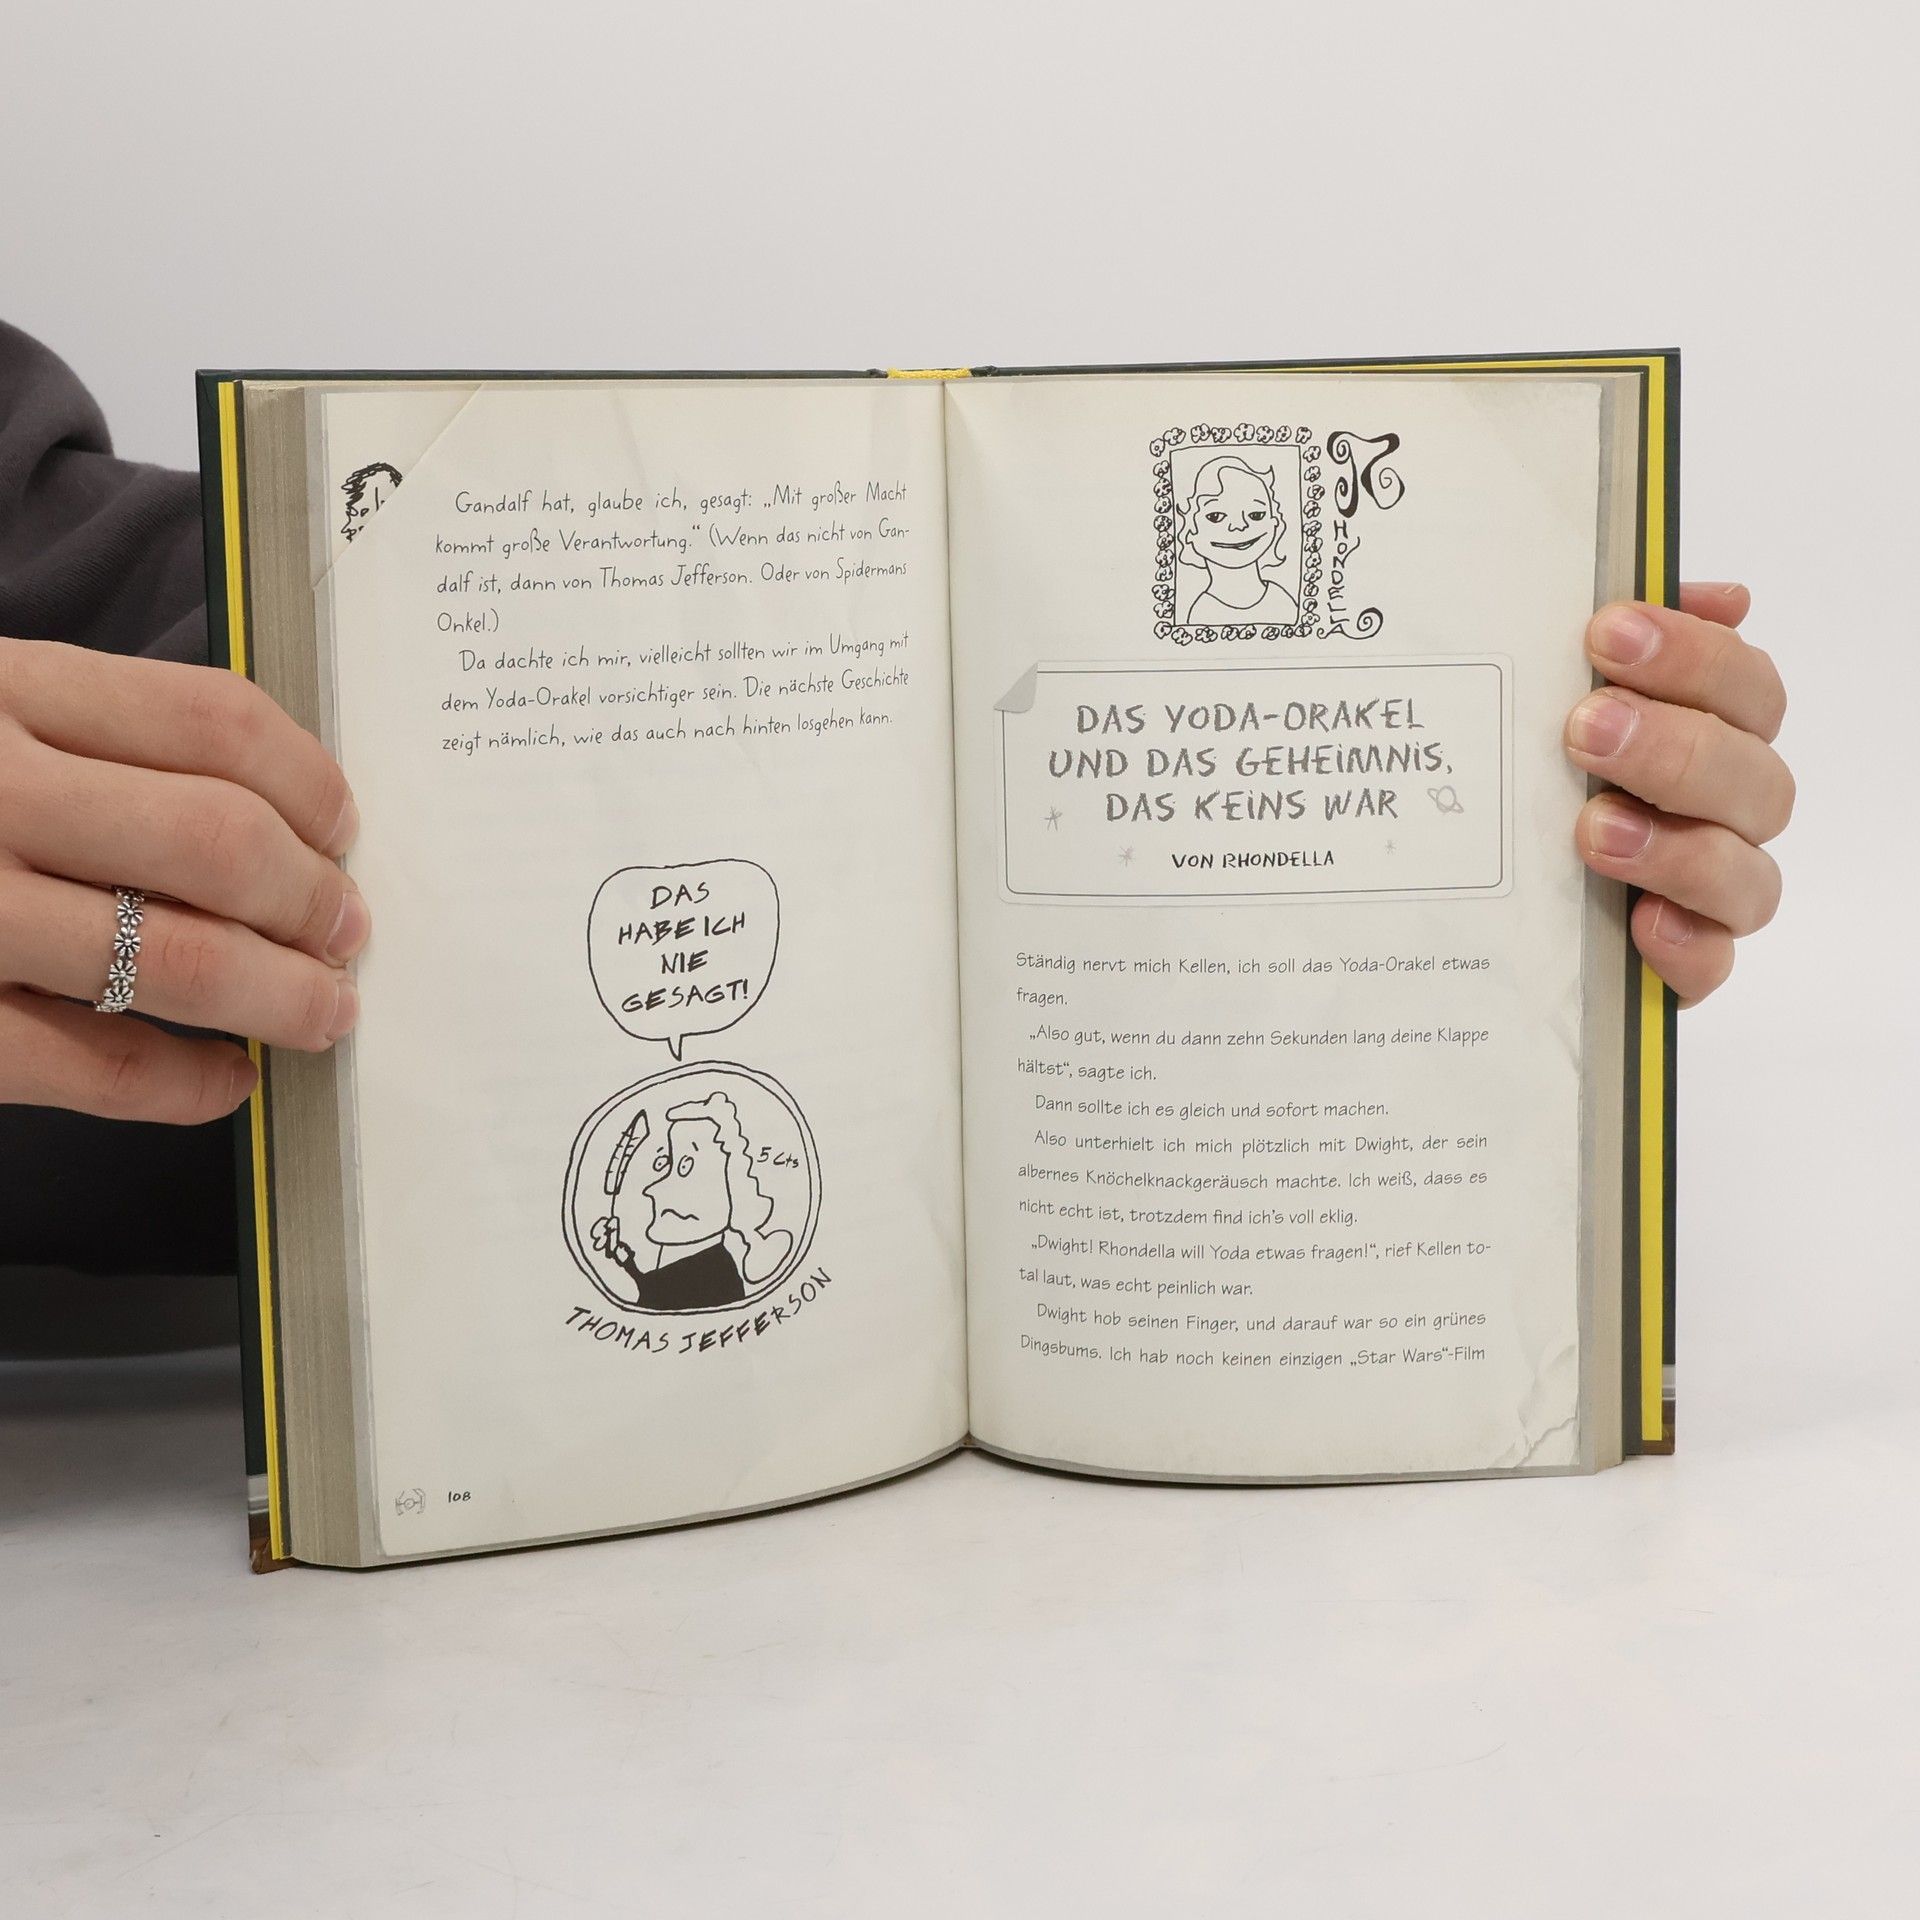 Gandalf hat, glaube ich, gesagt: „Mit großer Macht
kommt große Verantwortung.“ (Wenn das nicht von Gan-
dalf ist, dann von Thomas Jefferson. Oder von Spidermans
Onkel.)
Da dachte ich mir, vielleicht sollten wir im Umgang mit
dem Yoda-Orakel vorsichtiger sein. Die nächste Geschichte
zeigt nämlich, wie das auch nach hinten losgehen kann.
DAS
HABE ICH
NIE
GESAGT!
5 Cts
THOMAS JEFFERSON
108
RHONDELLA
DAS YODA-ORAKEL
UND DAS GEHEIMNIS,
DAS KEINS WAR
VON RHONDELLA
Ständig nervt mich Kellen, ich soll das Yoda-Orakel etwas
fragen.
„Also gut, wenn du dann zehn Sekunden lang deine Klappe
hältst“, sagte ich.
Dann sollte ich es gleich und sofort machen.
Also unterhielt ich mich plötzlich mit Dwight, der sein
albernes Knöchelknackgeräusch machte. Ich weiß, dass es
nicht echt ist, trotzdem find ich's voll eklig.
„Dwight! Rhondella will Yoda etwas fragen!“, rief Kellen to-
tal laut, was echt peinlich war.
Dwight hob seinen Finger, und darauf war so ein grünes
Dingsbums. Ich hab noch keinen einzigen „Star Wars“-Film